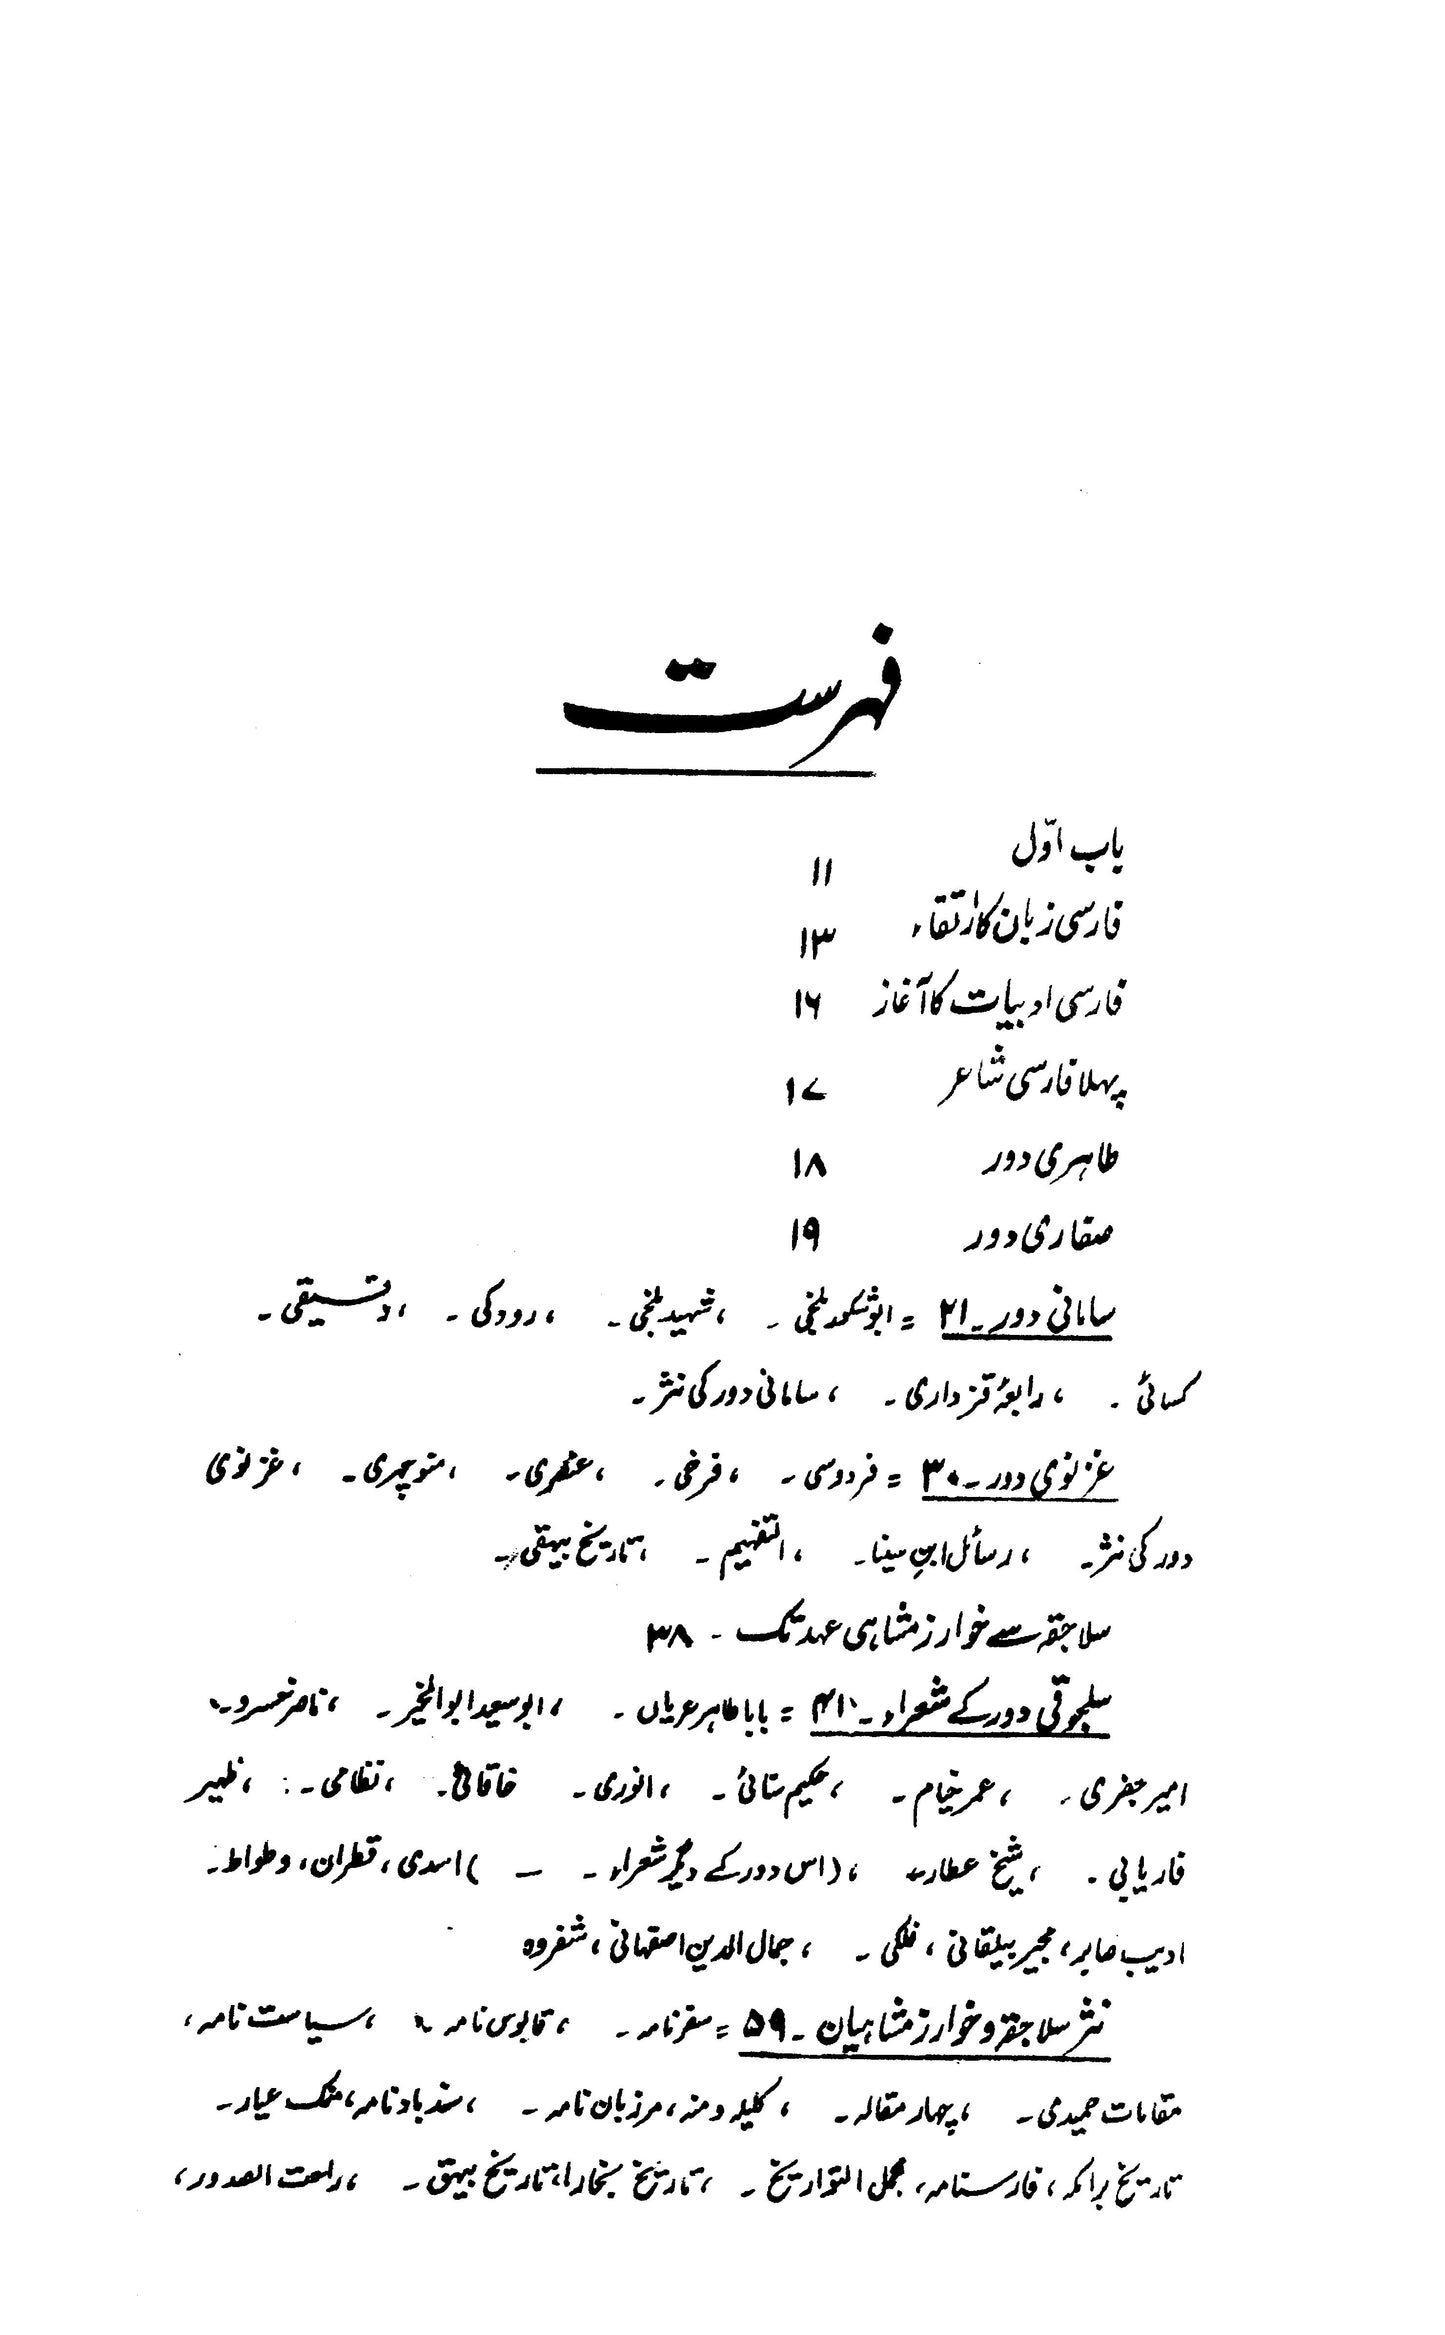 فہرست
باب اوّل ۱۱
فارسی زبان کا ارتقاء ۱۳
فارسی ادبیات کا آغاز ۱۶
پہلا فارسی شاعر ۱۷
طاہری دور ۱۸
صفاری دور ۱۹
سامانی دور ۔ ۲۱ = ابوشکور بلخی ۔ ، شہید بلخی ۔ ، رودکی ۔ ، دقیقی ۔
کسائی ۔ ، رابعۂ قزداری ۔ ، سامانی دور کی نثر ۔
غزنوی دور ۔ ۳۰ = فردوسی ۔ ، فرخی ۔ ، عنصری ۔ ، منوچہری ۔ ، غزنوی
دور کی نثر ۔ ، رسائل ابنِ سینا ۔ ، التفہیم ۔ ، تاریخ بیہقی ۔
سلاجقہ سے خوارزمشاہی عہد تک ۔ ۳۸
سلجوقی دور کے شعراء ۔ ۴۱ = بابا طاہر عریاں ۔ ، ابو سعید ابوالخیر ۔ ، ناصر خسرو ۔
امیر معزی ۔ ، عمر خیام ۔ ، حکیم سنائی ۔ ، انوری ۔ خاقانی ۔ ، نظامی ۔ ، ظہیر
فاریابی ۔ ، شیخ عطار ۔ ، (اس دور کے دیگر شعراء ۔ ــ ) اسدی ، قطران ، وطواط ۔
ادیب صابر ، مجیر بیلقانی ، فلکی ۔ ، جمال الدین اصفہانی ، شفروہ
نثر سلاجقہ و خوارزمشاہیان ۔ ۵۹ = سفرنامہ ۔ ، قابوس نامہ ۔ ، سیاست نامہ ،
مقامات حمیدی ۔ ، چہار مقالہ ۔ ، کلیلہ و منہ ، مرزبان نامہ ۔ ، سندباد نامہ ، سمک عیار ۔
تاریخ برامکہ ، فارسنامہ ، مجمل التواریخ ۔ ، تاریخ بخارا ، تاریخ بیہق ۔ ، راحت الصدور ،